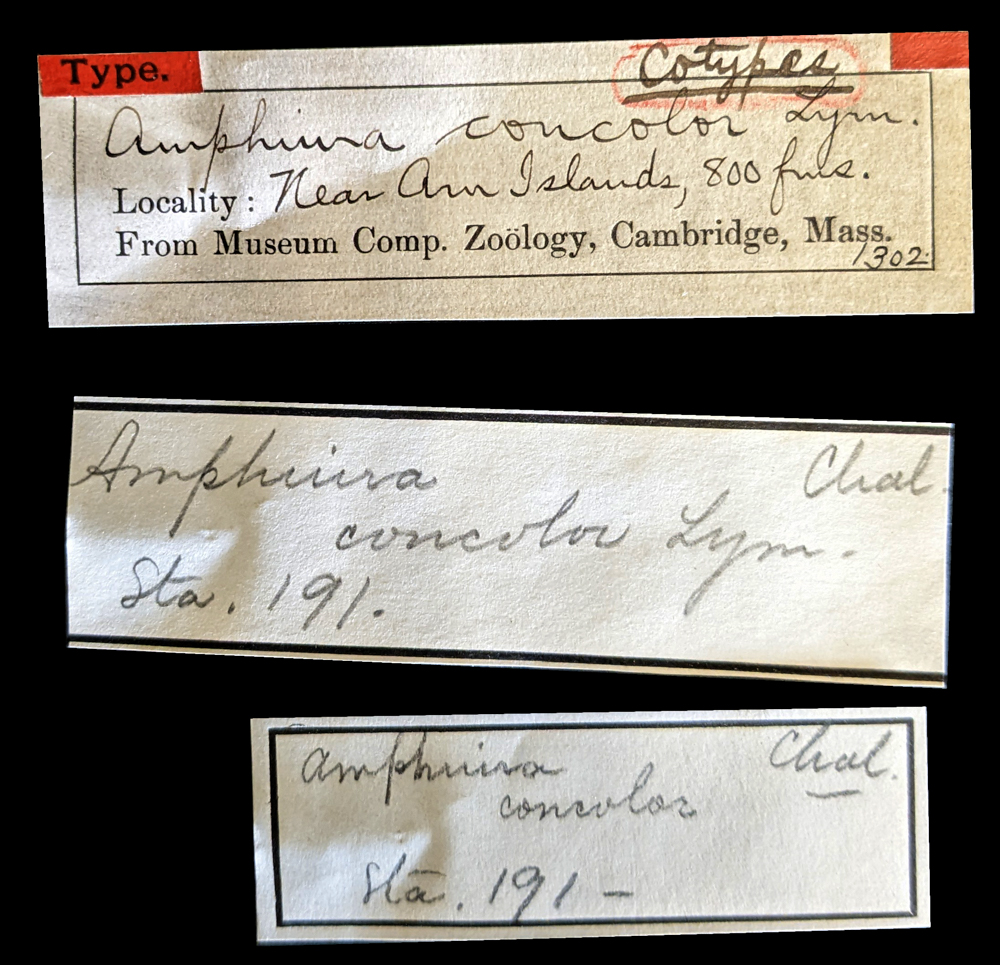 Type.
Cotypes
Amphiura concolor Lym.
Locality: Near Aru Islands, 800 fms.
From Museum Comp. Zoölogy, Cambridge, Mass.
1302.
Amphiura Chal.
concolor Lym.
Sta. 191.
Amphiura Chal.
concolor
Sta. 191 –